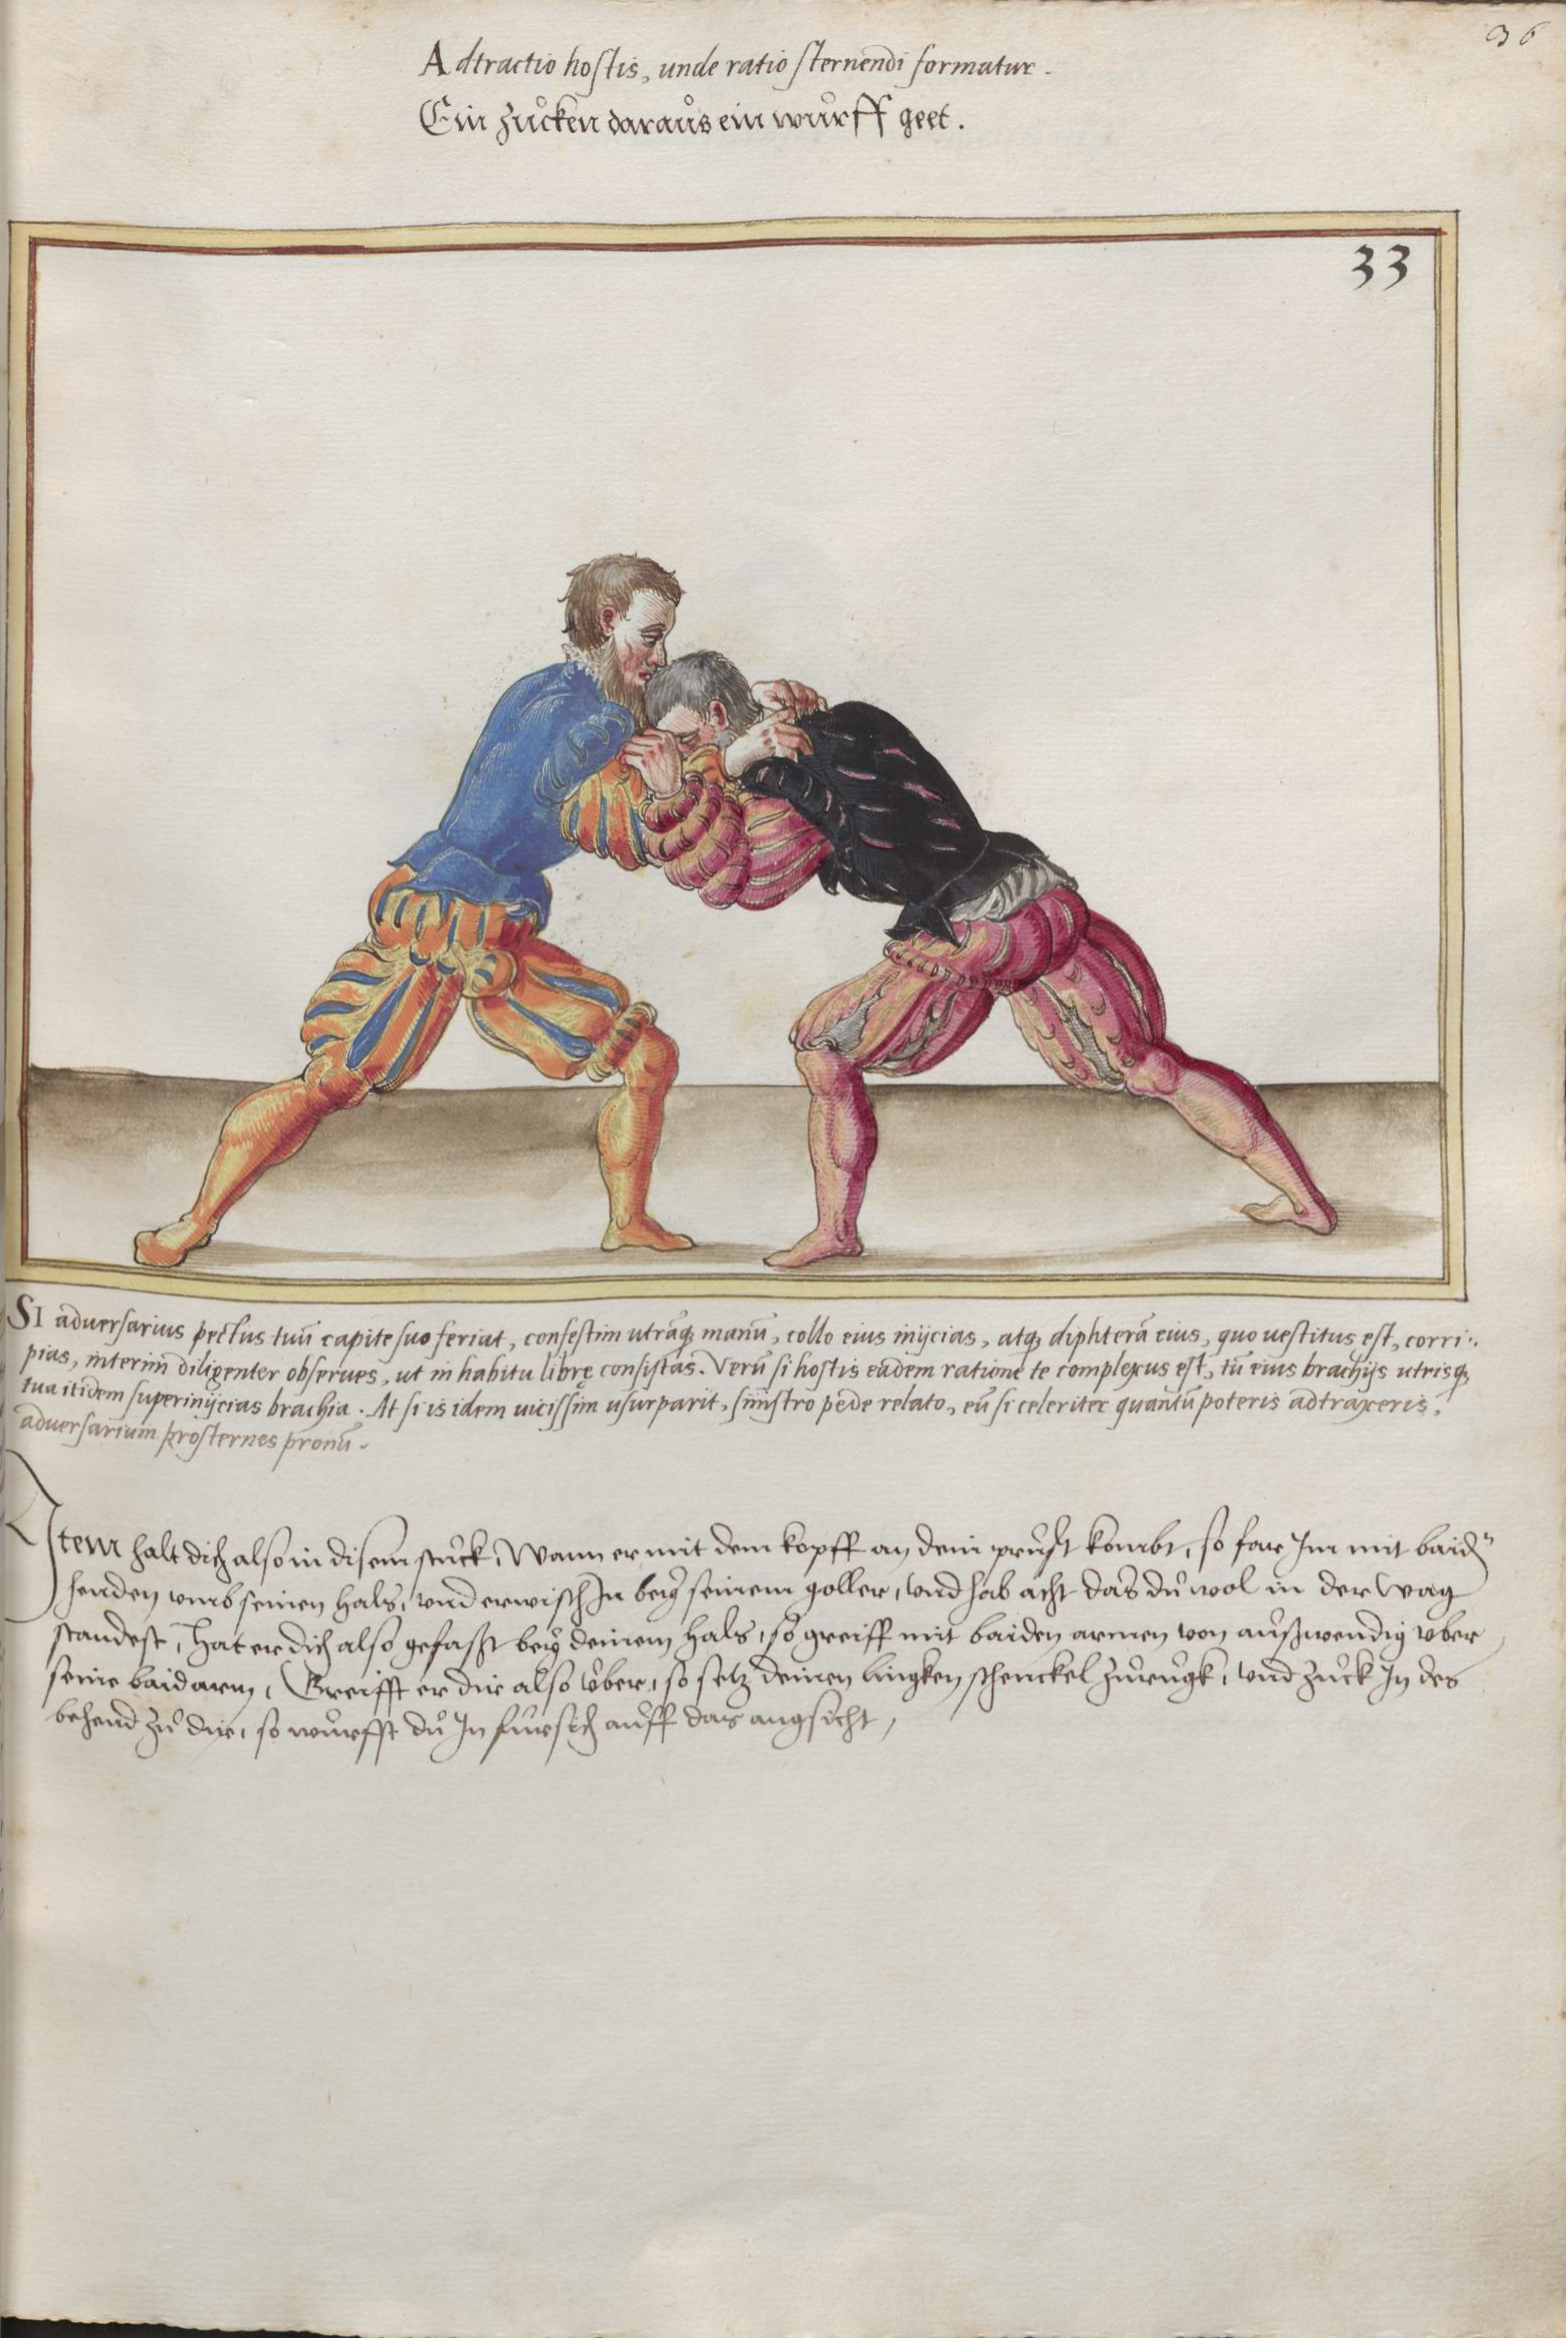 36
Adtractio hostis, unde ratio sternendi formatur.
Ein zůcken daraůs ein wůrff geet.
33
SI adversarius pectus tuū capite suo feriat, confestim utrāq; manū, collo eius inijcias, atq; diphterā eius, quo uestitus est, corri:
pias, interim diligenter observes, ut in habitu librę consistas. Verū si hostis eadem ratione te complexus est, tū eius brachijs utrisq;
tua itidem superinijcias brachia. At si is idem uicissim usurparit, sinistro pede relato, eū si celeriter quantū poteris adtraxeris,
adversarium prosternes pronū.
Item halt dich also in disem stuck, Wann er mit dem kopff an dein průst kombt, so far Im mit baidn
henden umb seinen hals, und erwisch In bey seinem goller, und hab acht das dů wol in der wag
standest, Hat er dich also gefasst bey deinem hals, so greiff mit baiden armen von aůsswendig uber
seine baid arm, Greifft er dir also ůber, so setz deinen lingken schenckel zůrůgk, und zůck In des
behend zů dir, so wůrffst dů In fůrsich aůff das angsicht,